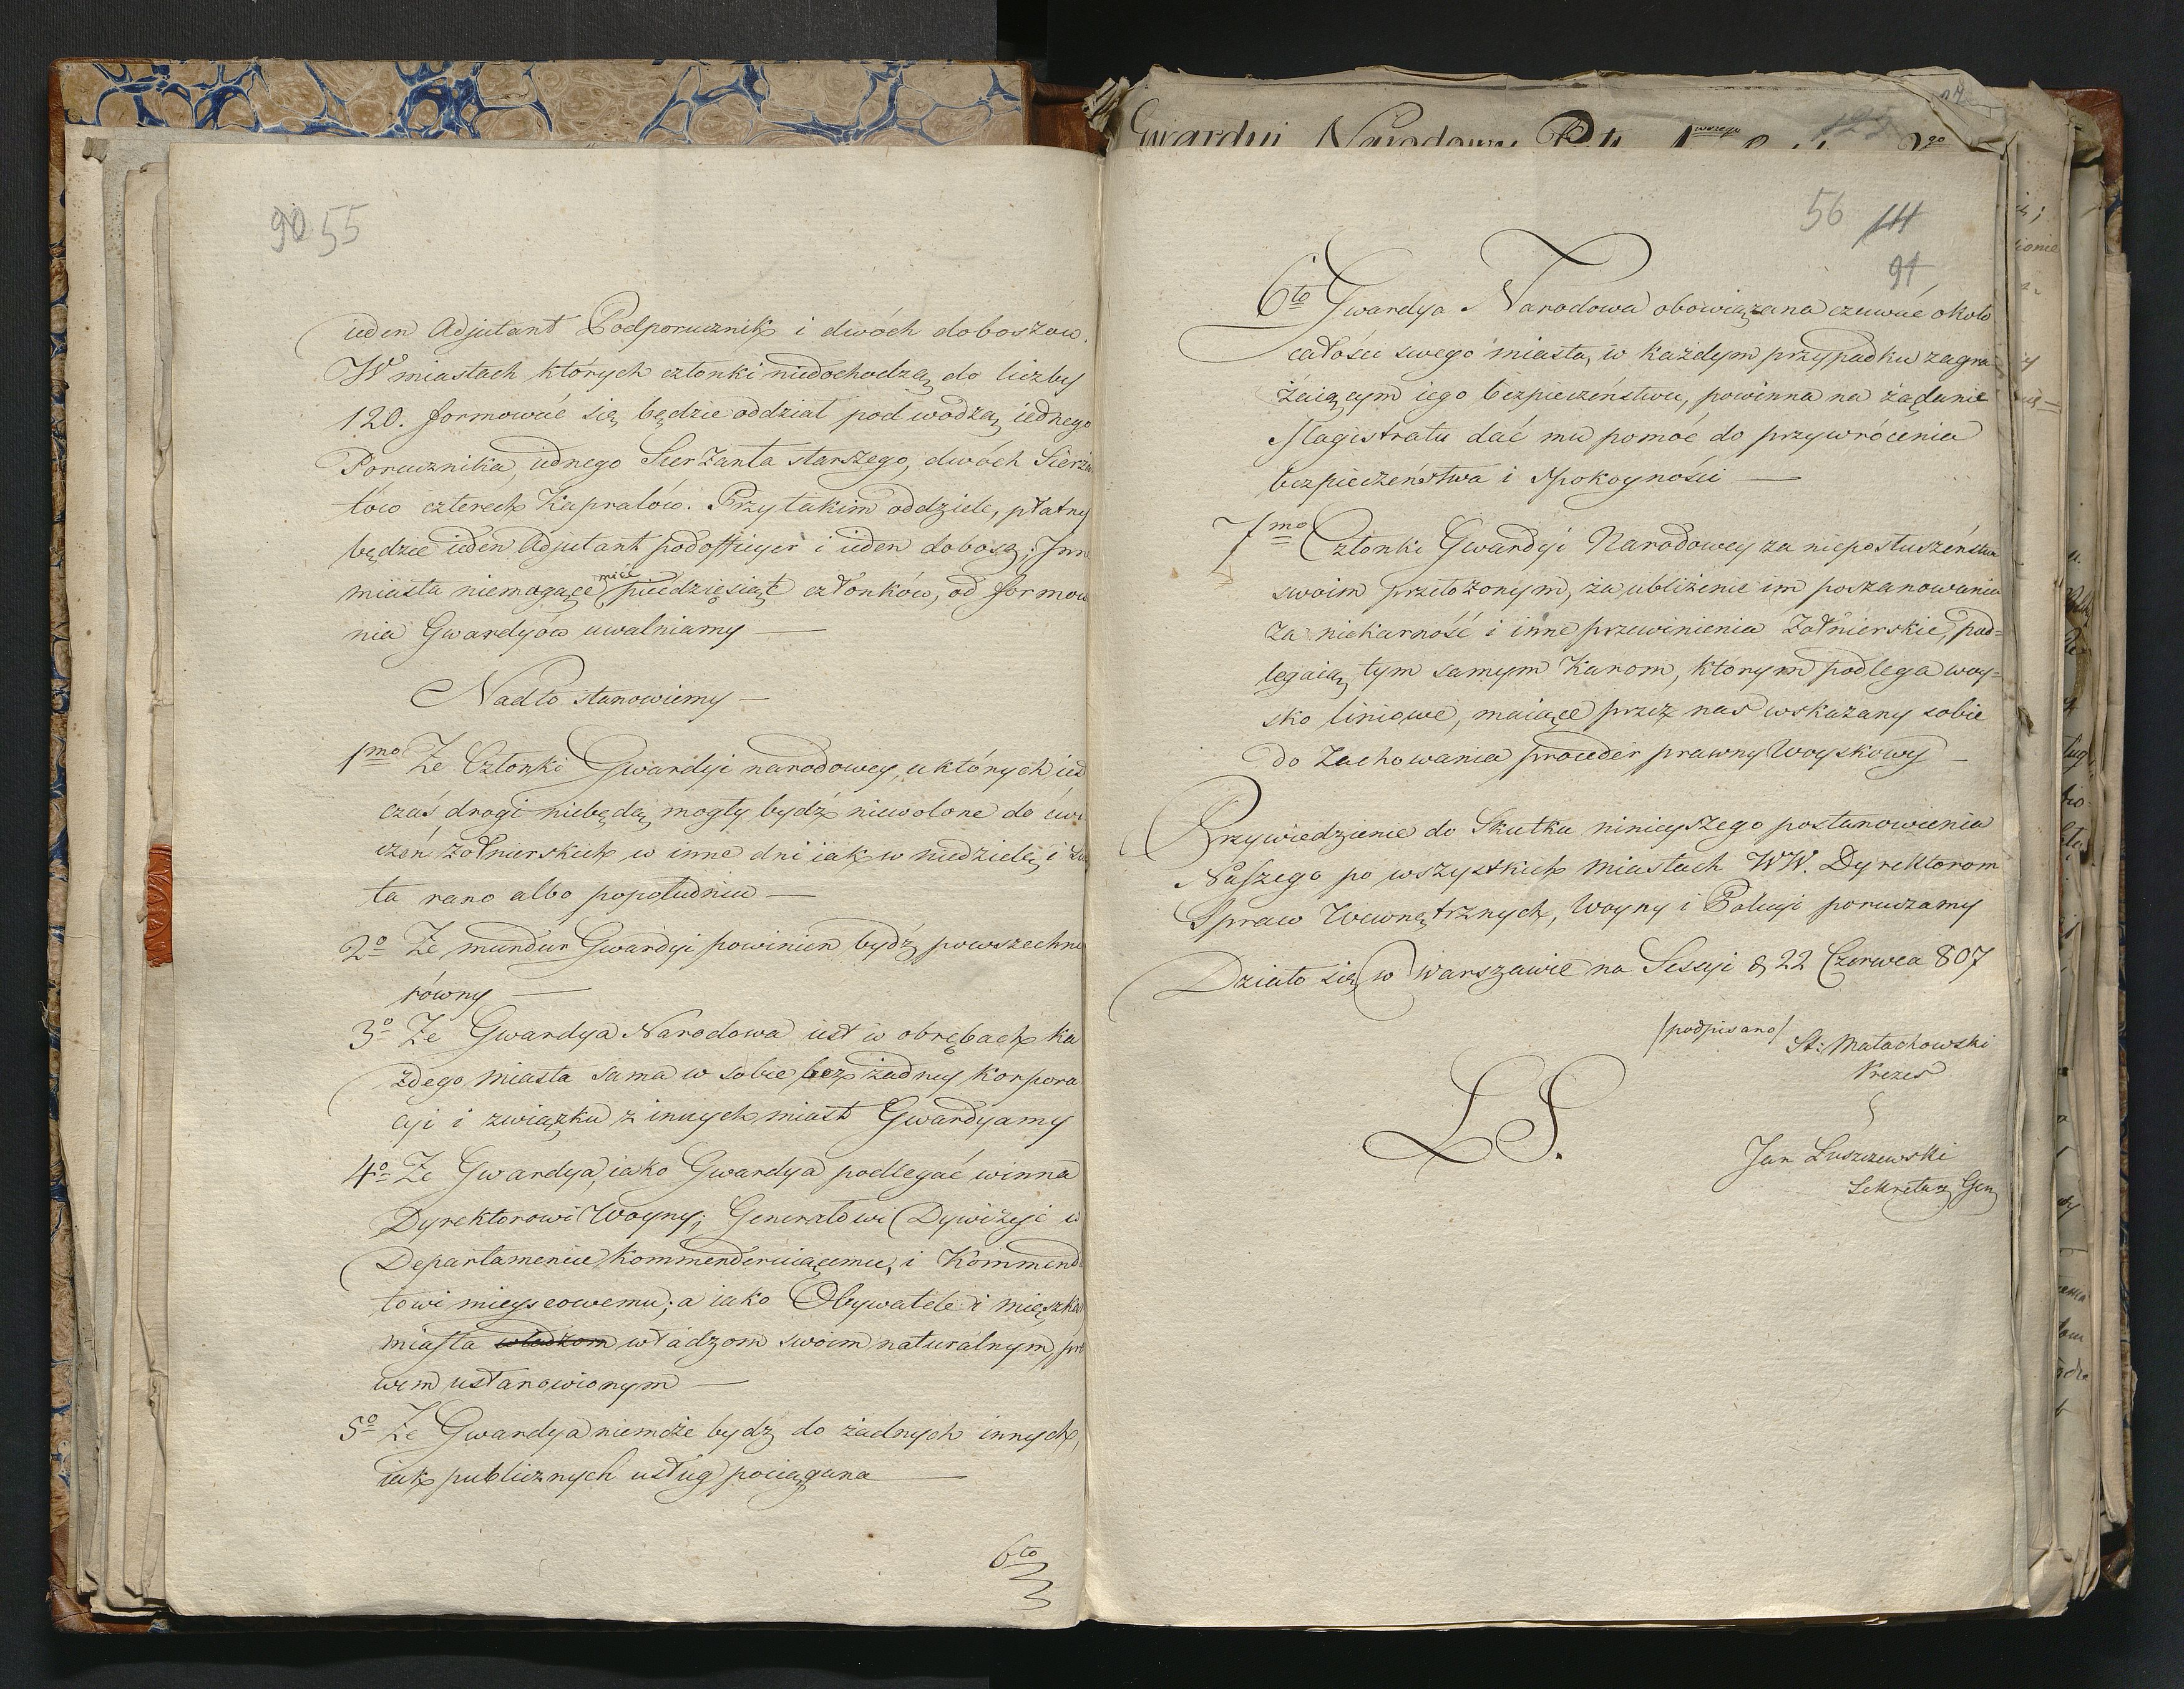 90 55
ieden Adjutant Podporucznik i dwóch doboszów.
W miastach których członki niedochodzą do liczby
120. formować się będzie oddział pod wodzą iednego
Porucznika, iednego Sierżanta starszego, dwóch Sierża
tów czterech Kapralów. Przy takim oddziele, płatny
będzie ieden Adjutant podofficyer i ieden dobosz; Inn
miasta niemogące mieć piędziesiąt członków, od formow
nia Gwardyów uwalniamy —
Nadto stanowiemy —
1mo Że Członki Gwardyi narodowey, u których iest
czas drogi niebędą mogły bydź niewolone do ćwi
czeń żołnierskich w inne dni iak w niedzielę i Św
ta rano albo popołudniu —
2o Że mundur Gwardyi powinien bydź powszechnie
równy —
3o Że Gwardya Narodowa iest w obrębach ka
żdego miasta sama w sobie bez żadney korpora
cyi i związku z innych miast Gwardyamy
4o Że Gwardya, iako Gwardya podlegać winna
Dyrektorowi Woyny; Generałowi Dywizyi w
Departamencie kommenderuiącemu, i Kommend
towi mieyscowemu; a iako Obywatele i mieszka
miasta władzom władzom swoim naturalnym, pra
wem ustanowionym —
5o Że Gwardya niemoże bydź do żadnych innych,
iak publicznych usług pociągana —
6to
Gwardyi Narodowy
56 111
91
6to Gwardya Narodowa obowiązana czuwać około
całości swego miasta, w każdym przypadku zagra-
żaiącym iego bezpieczeństwu, powinna na żądanie
Magistratu dać mu pomoc do przywrócenia
bezpieczeństwa i Spokoyności —
7mo Członki Gwardyi Narodowey za nieposłuszeństwo
swoim przełożonym, za ubliżenie im poszanowania
za niekarność i inne przewinienia Żołnierskie, pod=
legaią tym samym Karom, którym podlega woy=
sko liniowe, maiące przez nas wskazany sobie
do Zachowania proceder prawny Woyskowy —
Przywiedzienie do Skutku ninieyszego postanowienia
Naszego po wszystkich Miastach WW. Dyrektorom
Spraw Wewnętrznych, Woyny i Policyi poruczamy
Działo się w Warszawie na Sessyi d 22 Czerwca 807
/podpisano/ St: Małachowski
Prezes
LS.
Jan Łuszczewski
Sekretarz Gen